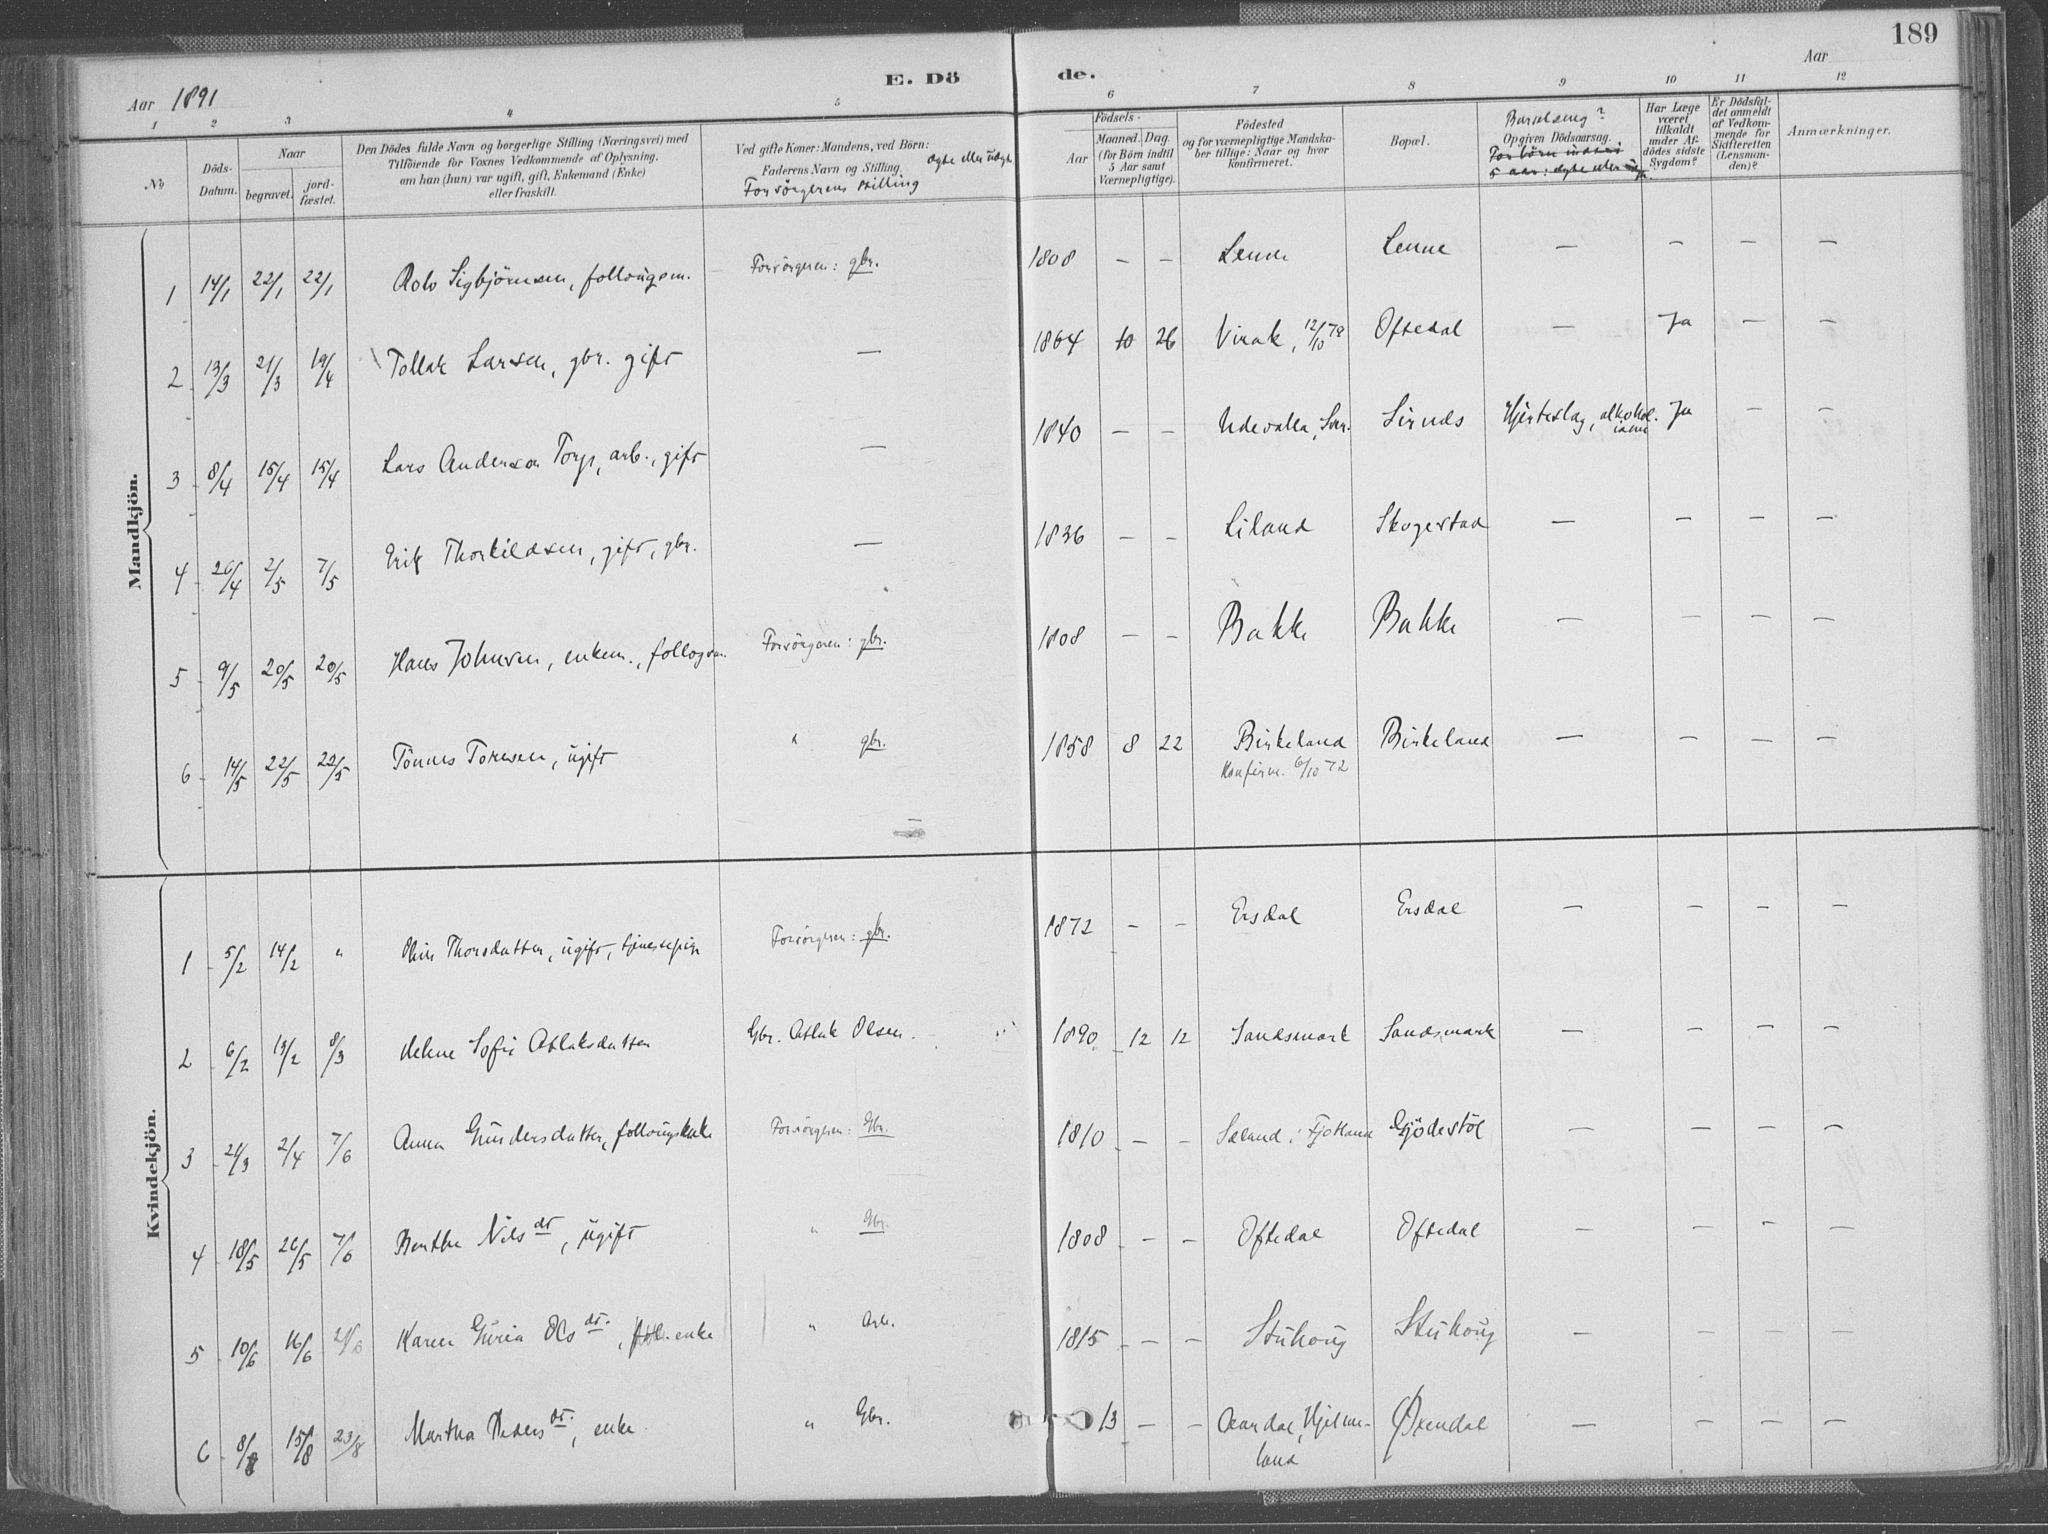 189
Aar 1891
E. Dö de.
Aar
1 2 3 4 5 6 7 8 9 10 11 12
No
Döds-Datum.
Naar
begravet.
jord-fæstet.
Den Dödes fulde Navn og borgerlige Stilling (Næringsvei) med
Tilföiende for Voxnes Vedkommende af Oplysning.
om han (hun) var ugift, gift, Enkemand (Enke)
eller fraskilt.
Ved gifte Koner: Mandens, ved Börn:
Faderens Navn og Stilling. ægte eller uægte
Forsörgerens stilling
Födsels-
Aar
Maaned. Dag.
(for Börn indtil
5 Aar samt
Værnepligtige).
Födested
og for værnepligtige Mandska-
ber tillige: Naar og hvor
konfirmeret.
Bopæl.
Barselseng?
Opgiven Dödsaarsag.
For börn indtil
5 aar: ægte eller
Har Læge
været
tilkaldt
under Af-
dödes sidste
Sygdom?
Er Dödsfal-
det anmeldt
af Vedkom-
mende for
Skifteretten
(Lensman-
den)?
Anmærkninger.
Mandkjön.
1 14/1 22/1 22/1 Rolv Sigbjörnsen, follougsm. Forsörgeren: gbr. 1808 — — Lenne Lenne — — — —
2 13/3 21/3 19/4 Tollak Larsen, gbr. gift — 1864 10 26 Virak, 12/10 79 Oftedal — Ja — —
3 8/4 15/4 15/4 Lars Anderson Torp, arb., gift — 1840 — — Udevalla, Sver. Sirnes Hjerteslag, alkohol-
isme Ja — —
4 26/4 2/5 7/5 Erik Thorkildsen, gift, gbr. — 1836 — — Liland Skogestad — — — —
5 9/5 20/5 20/5 Hans Johnsen, enkem., follogsm. Forsörgeren: gbr. 1808 — — Bakke Bakke — — — —
6 14/5 22/5 22/5 Tönnes Toresen, ugift " gbr. 1858 8 22 Birkeland Birkeland — — — —
Konfirm. 6/10 72
Kvindekjön.
1 5/2 14/2 " Thorsdatter, ugift, tjenestepige Forsörgeren: gbr. 1872 — — Ersdal Ersdal — — — —
2 6/2 13/2 8/3 Helene Sofie Atlaksdatter Gbr. Atlak Olsen. 1890 12 12 Sandsmark Sandsmark — — — —
3 24/3 2/4 7/6 Anna Gundersdatter, follougskake Forsörgeren: Gbr. 1810 — — Sæland i Fjotland Gjödestöl — — — —
4 18/5 26/5 7/6 Benthe Nilsdt, ugift " Gbr. 1808 — — Oftedal Oftedal — — — —
5 10/6 16/6 Karen Guria Olsdt., fol. enke " Arb. 1815 — — Stuhoug Stuhoug — — — —
6 8/8 15/8 23/8 Martha Pedersdt., enke. " Gbr. 13 — — Aardal, Hjelme-
land Øxendal — — — —